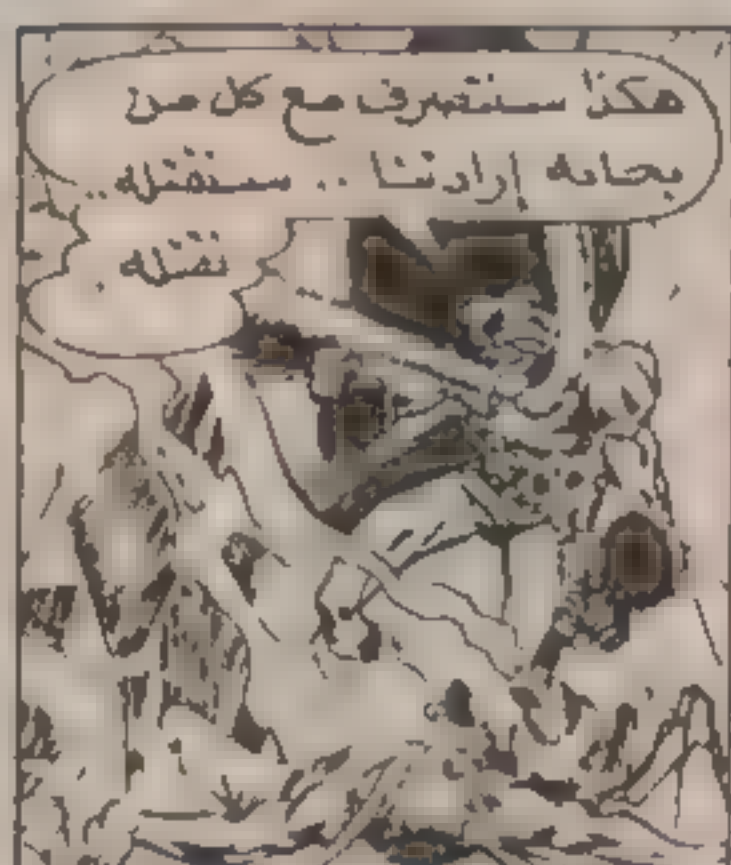 هكذا سنتصرف مع كل من
يجابه إرادتنا .. سنقتله ..
نقتله